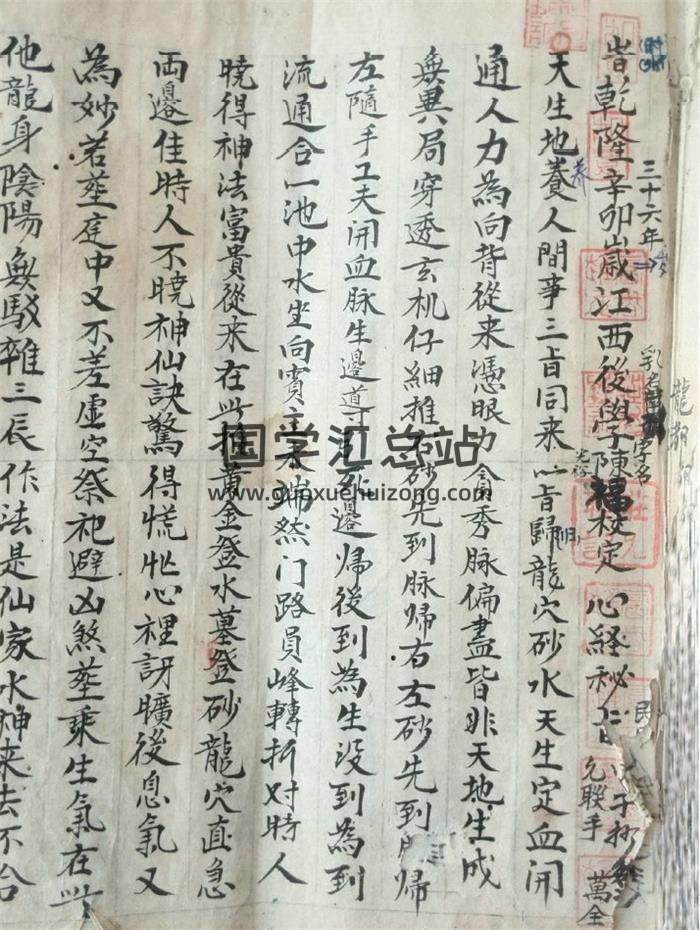 旹乾隆辛卯歲江西後學陳福校定 心経秘旨
三十六年
乳名
字名
允聯手
萬全
天生地養人間事三旨同来以旨歸龍穴砂水天生定血開
養
歸
通人力為向背從来憑眼力貪秀脉偏盡皆非天地生成
無異局穿透玄机仔細推砂先到脉歸右左砂先到脉歸
左隨手工夫開血脉生邊邊帰後到為生没到為到
流通合一池中水坐向賓主端然门路員峰轉折对時人
曉得神法富貴從来在此推黄金登水墓登砂龍穴直急
両邊佳時人不曉神仙訣驚得慌忙心裡訝曠後息氣又
為妙若塟庭中又不差虚空祭祀避凶煞塟乘生氣在此
他龍身陰陽無駁雜三辰作法是仙家水神来去不合
国学汇总站
www.guoxuehuizong.com